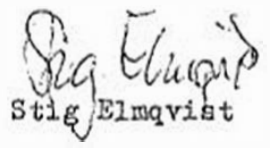 Stig Elmqvist
Stig Elmqvist